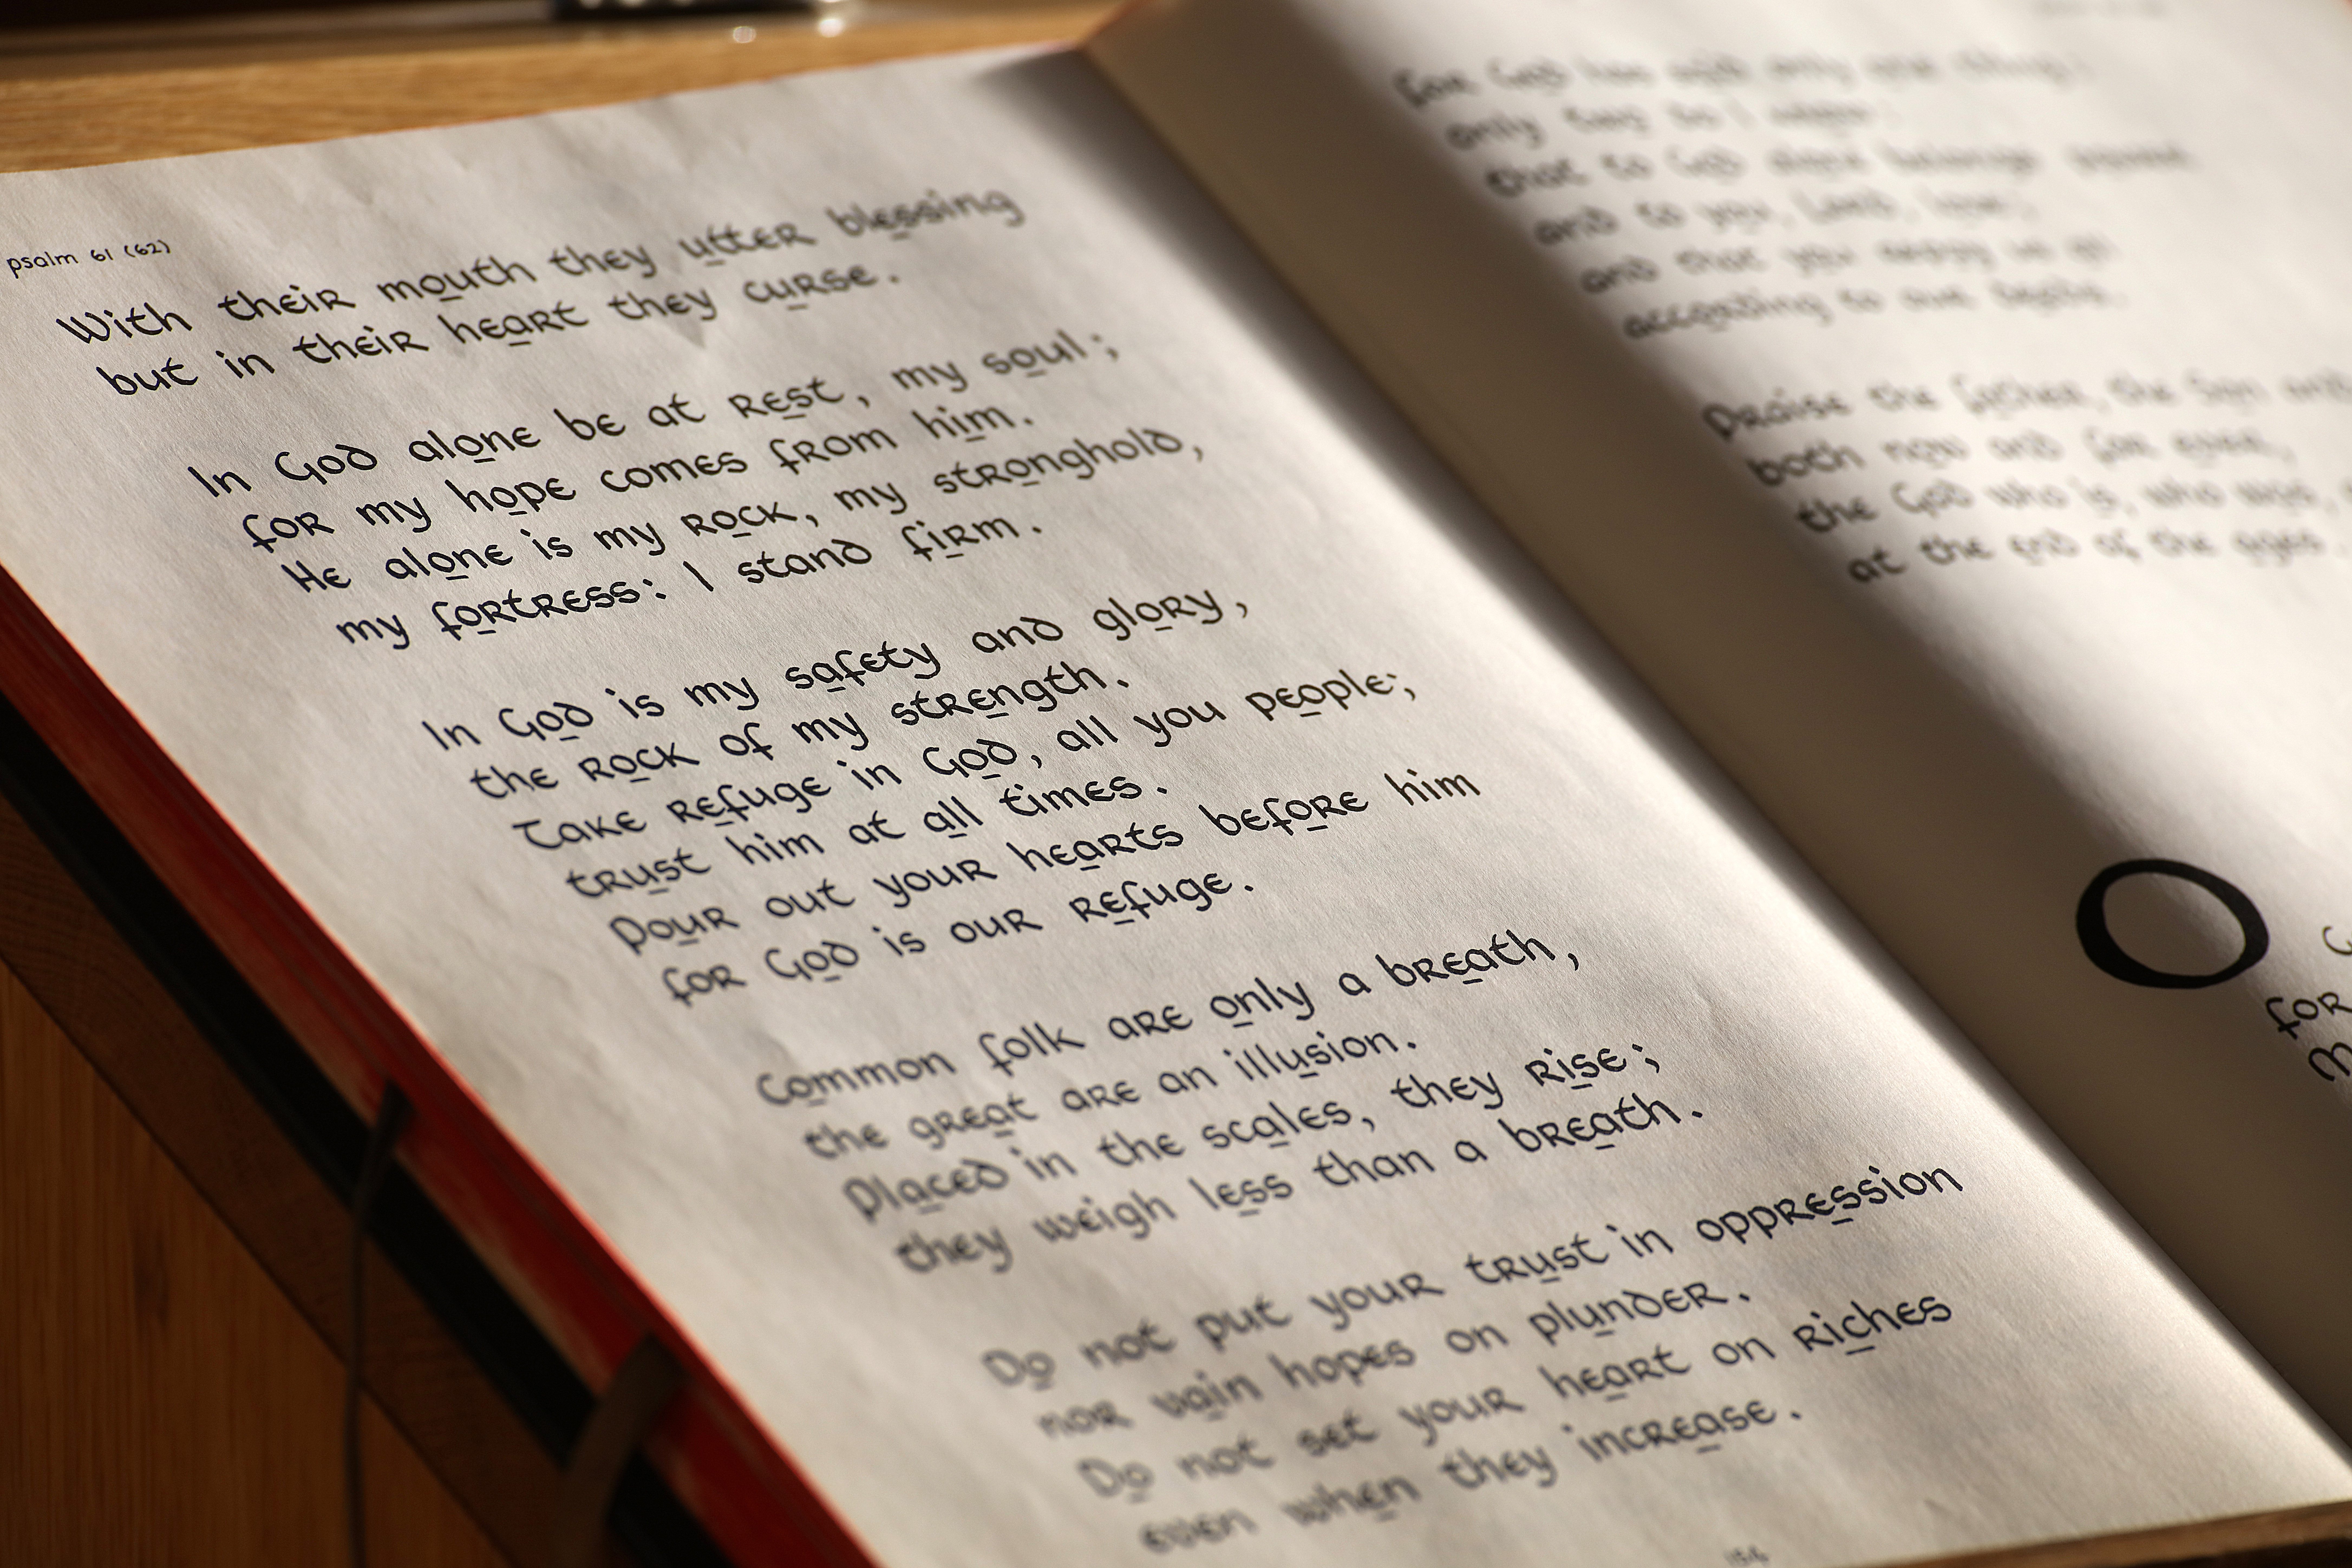 psalm 61 (62)
With their mouth they utter blessing
but in their heart they curse.
In God alone be at rest, my soul;
for my hope comes from him.
He alone is my rock, my stronghold,
my fortress: I stand firm.
In God is my safety and glory,
the rock of my strength.
Take refuge in God, all you people;
trust him at all times.
Pour out your hearts before him
for God is our refuge.
Common folk are only a breath,
the great are an illusion.
Placed in the scales, they rise;
they weigh less than a breath.
Do not put your trust in oppression
nor vain hopes on plunder.
Do not set your heart on riches
even when they increase.
For God has said only one thing:
only two do I
that to God alone belongs
and to you, Lord, love;
and that you repay us all
according to our deeds.
Praise the Father, the Son and
both now and for ever,
the God who is, who was,
at the end of the ages.
O
for